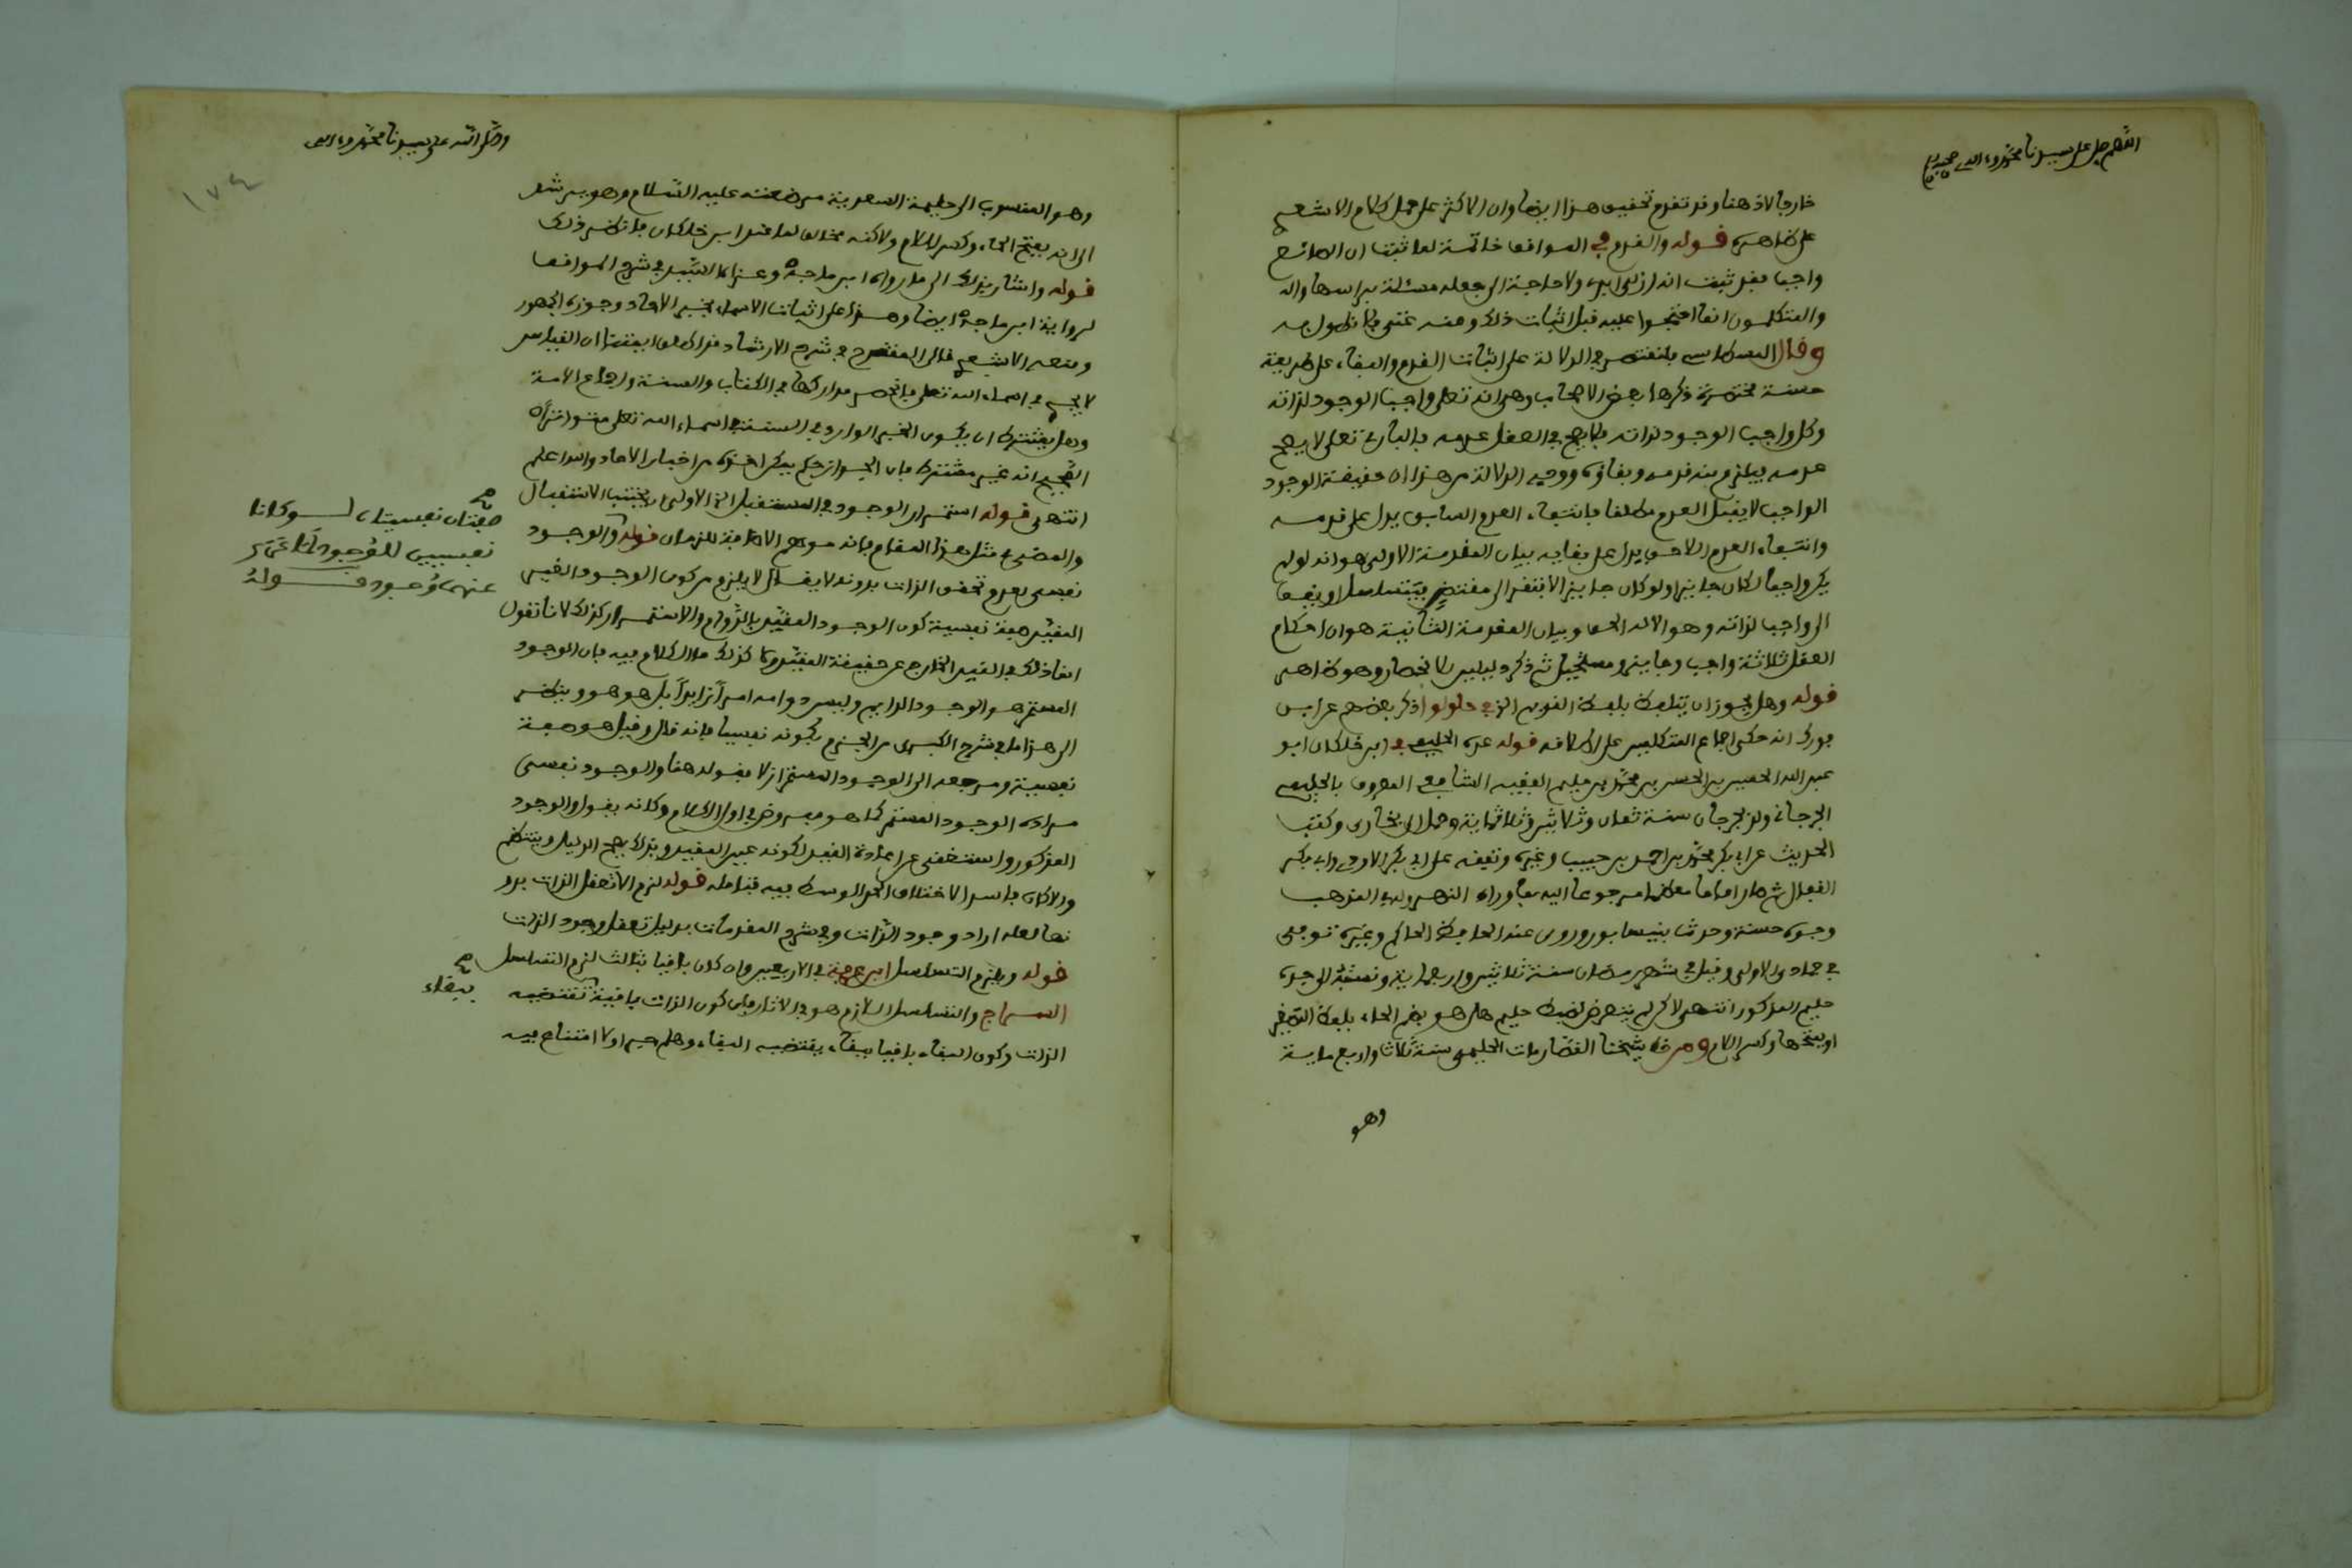 اللهم صل على سيدنا محمد وءاله وصحبه
خارجا لا ذهنا وقد تقدم تحقيق هذا ايضا وان الاكثر على حمل كلام الاشعري
على ظاهره قوله والقدم في المواقف خاتمة لما ثبت ان الصانع
واجب فقد ثبت انه ازلي ابدي ولا حاجة الى جعله مسئلة براسها والـ
والمتكلمون انما احتجوا عليه قبل اثبات ذلك وعنه غنى فلا نطول به
وقال البسطامي يلتمس في الدلالة على اثبات القدم والبقاء على طريقة
حسنة مختصرة ذكرها بعض الاصحاب وهي انه تعلى واجب الوجود لذاته
وكل واجب الوجود لذاته فلا يصح في العقل عدمه فالبارئ تعلى لا يصح
عدمه فيلزم منه قدمه وبقاؤه ووجه الدلالة من هذا ان حقيقة الوجود
الواجب لا يقبل العدم مطلقا فانتفاء العدم السابق يدل على قدمه
وانتفاء العدم اللاحق يدل على بقايه بيان المقدمة الاولى هو انه لو لم
يكن واجبا لكان جايزا ولو كان جايزا لافتقر الى مقتض فيتسلسل او يقف
الى واجب لذاته وهو الاله الحق وبيان المقدمة الثانية هو ان احكام
العقل ثلاثة واجب وجايز ومستحيل ثم ذكر دليل الانحصار وهو ظاهر
قوله وهل يجوز ان يتلفظ بلفظ القديم الخ في حلولو ذكر بعضهم عن ابن
فورك انه حكى اجماع المتكلمين على الاطلاق قوله عده الحليمي في ابن خلكان ابو
عبد الله الحسين بن الحسن بن محمد بن حليم الفقيه الشافعي المعروف بالحليمي
الجرجاني ولد بجرجان سنة ثمان وثلاثين وثلاثماية وحمل الى بخارى وكتب
الحديث عن ابي بكر محمد بن احمد بن حبيب وغيره وتفقه على ابي بكر الاودي وابي بكر
القفال ثم صار اماما معظما مرجوعا اليه بما وراء النهر وله في المذهب
وجوه حسنة وحدث بنيسابور وروى عنه الحافظ الحاكم وغيره توفي
في جمادى الاولى وقيل في شهر ربيع سنة ثلاث واربعماية ونسبته الى جده
حليم المذكور انتهى لاكن لم يتعرض لضبط حليم هل هو بضم الحاء بلفظ التصغير
او بفتحها وكسر اللام ومن خط شيخنا القصار مات الحليمي سنة ثلاث واربع ماية
وهو
وصلى الله على سيدنا محمد وءاله
١٧٤
وهو المنسوب الى حليمة السعدية مرضعته عليه السلام وهو يرشد
الى انه بفتح الحاء وكسر اللام ولاكنه مخالف لما عند ابن خلكان فانظر ذلك
قوله واشار بذلك الى ما رواه ابن ماجه وعزاه السيد في شرح المواقف
لرواية ابن ماجه ايضا وهذا على اثبات الاسماء بخبر الاحاد وجوزه الجمهور
ومنعه الاشعري قال المقترح في شرح الارشاد فرا كلف ابقتنا ان القياس
لا يجري في اسماء الله تعلى فانحصر مداركها في الكتاب والسنة واجماع الامة
وهل يشترط ان يكون الخبر الوارد في السنة في اسماء الله تعلى متواترا
الصحيح انه غير مشترط فان الجواز حكم فيكفي اخذه من اخبار الاحاد والله اعلم
انتهى قوله استمرار الوجود في المستقبل الخ الاولى ان يجتنب الاستقبال
والمضي في مثل هذا المقام فانه موهم الاضافة للزمان قوله والوجود
نفسي لعدم تحقق الذات بدونه لا يقال لا يلزم من كون الوجود الغير
المقيد صفة نفسية كون الوجود المقيد بالدوام والاستمرار كذلك لانا نقول
انما ذلك في القيد الخارج عن حقيقة المقيد ولا كذلك ما الكلام فيه فان الوجود
المستمر هو الوجود الدايم وليس دوامه امرا زايدا بل هو هو وينظر
الى هذا ما في شرح الكبرى من الجزم بكونه نفسيا فانه قال وقيل هو صفة
نفسية ومرجعه الى الوجود المستمر ازلا فقوله هنا والوجود نفسي
مراده الوجود المستمر كما هو مفروض في اول الكلام وكانه يقول والوجود
المذكور واستغنى عن اعادة القيد لكونه عين المقيد وبذلك يصح الدليل وينتظم
والا كان فاسد الاختلاف الحد الوسط فيه فتامله قوله لزم الا تعقل الذات بدو
نها لعله اراد وجود الذات وفي شرح المقدمات بدليل تعقل وجود الذات
قوله ويلزم التسلسل ابن عرفة في الاربعين وان كان باقيا بثالث لزم التسلسل
السراج والتسلسل اللازم هو في الاثار فان كون الذات باقية تقتضيه
الذات وكون البقاء باقيا ببقاء يقتضيه البقاء وهلم جرا ولا امتناع فيه
صفتان نفسيتان لو كانا
نفسيين للوجود لما عري
عنهما وجود قوله
ببقاء